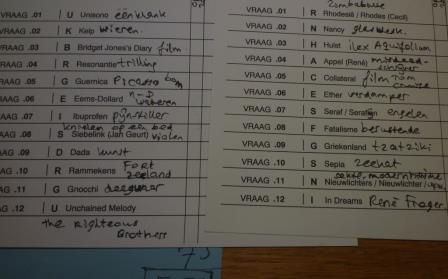 VRAAG .01 U Unisono één klank
VRAAG .02 K Kelp wieren.
VRAAG .03 B Bridget Jones's Diary film
VRAAG .04 R Resonantie trilling
VRAAG .05 G Guernica Picasso
VRAAG .06 E Eems-Dollard n-D wateren
VRAAG .07 I Ibuprofen pijnstiller
knielen op een bed
VRAAG .08 S Siebelink (Jan Geurt) violen
VRAAG .09 D Dada kunst
VRAAG .10 R Rammekens Fort zeeland
VRAAG .11 G Gnocchi
VRAAG .12 U Unchained Melody
the Righteous
Brothers
Zimbabwe
VRAAG .01 R Rhodesië / Rhodes (Cecil)
VRAAG .02 N Nancy
VRAAG .03 H Hulst ilex Aquifolium
VRAAG .04 A Appel (René)
VRAAG .05 C Collateral film Tom Cruise
VRAAG .06 E Ether verdamper
VRAAG .07 S Seraf / Serafijn engelen
VRAAG .08 F Fatalisme berustende
VRAAG .09 G Griekenland tzatziki
VRAAG .10 S Sepia zeekat
VRAAG .11 N Nieuwlichters / Nieuwlichter
VRAAG .12 I In Dreams René Froger
73